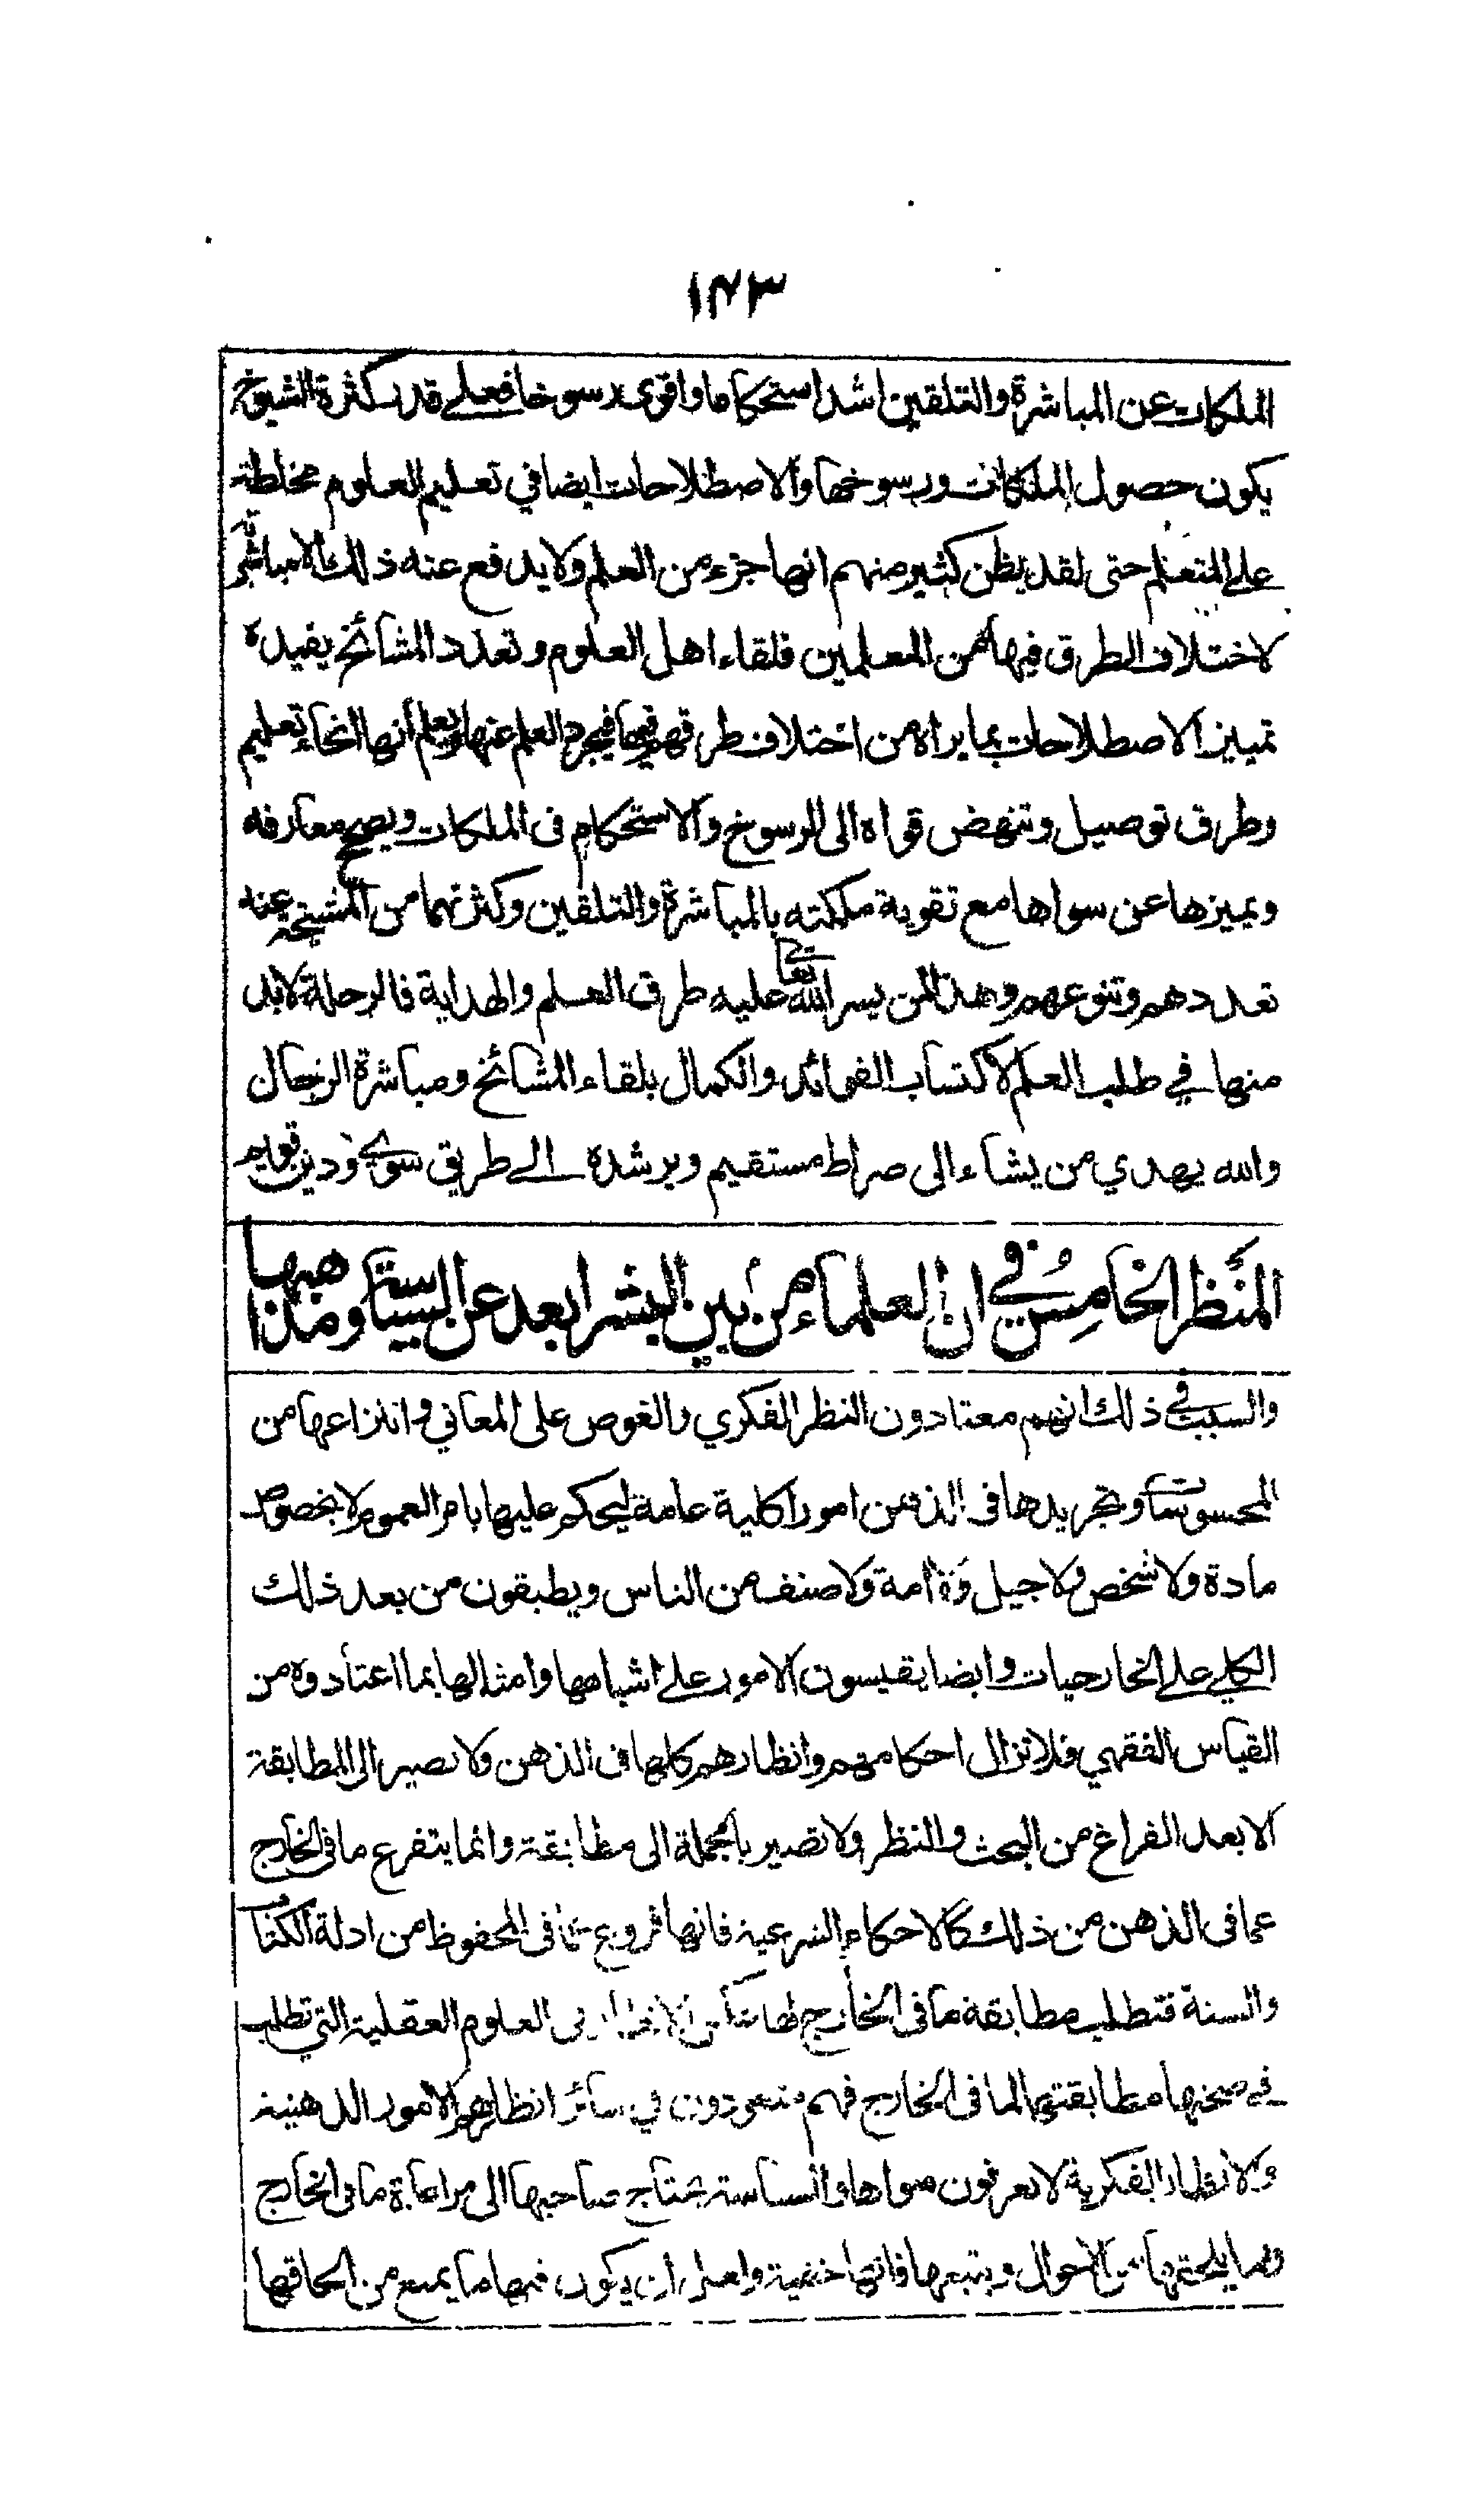 ١٤٣
الملكات عن المباشرة والتلقين اشد استحكاما واقوى رسوخا فعلى قدر كثرة الشيوخ
يكون حصول الملكات ورسوخها والاصطلاحات ايضا في تعليم العلوم مخلطة
على المتعلم حتى لقد يظن كثير منهم انها جزء من العلم ولا يدفع عنه ذلك الا مباشرته
لاختلاف الطرق فيها من المعلمين فلقاء اهل العلوم وتعدد المشائخ يفيده
تمييز الاصطلاحات بما يراه من اختلاف طرقهم فيها فيجرد العلم عنها ويعلم أنها انحاء تعليم
وطرق توصيل وتنهض قواه الى الرسوخ والاستحكام فى الملكات ويصحح معارفه
ويميزها عن سواها مع تقوية ملكته بالمباشرة والتلقين وكثرتهما من المشيخة عند
تعددهم وتنوعهم وهذا لمن يسر الله تعالى عليه طرق العلم والهداية فالرحلة لابد
منها في طلب العلم لاكتساب الفوائد والكمال بلقاء المشائخ ومباشرة الرجال
والله يهدي من يشاء الى صراط مستقيم ويرشده الى طريق سوي ودين قويم
المنظر الخامس في ان العلماء من بين البشر ابعد عن السياسة ومذاهبها
والسبب في ذلك انهم معتادون النظر الفكري والغوص على المعاني وانتزاعها من
المحسوسات وتجريدها فى الذهن امورا كلية عامة ليحكم عليها بامر العموم لا بخصوص
مادة ولا شخص ولا جيل ولا أمة ولا صنف من الناس ويطبقون من بعد ذلك
الكلي على الخارجيات وايضا يقيسون الامور على اشباهها وامثالها بما اعتادوه من
القياس الفقهي فلا تزال احكامهم وانظارهم كلها فى الذهن ولا تصير الى المطابقة
الا بعد الفراغ من البحث والنظر ولا تصير بالجملة الى مطابقة وانما يتفرع ما فى الخارج
عما فى الذهن من ذلك كالاحكام الشرعية فانها فروع عما فى المحفوظ من ادلة الكتاب
والسنة فتطلب مطابقة ما فى الخارج لها عكس الانظار فى العلوم العقلية التي تطلب
في صحتها مطابقتها لما فى الخارج فهم متعودون في سائر انظارهم الامور الذهنية
والانظار الفكرية لا يعرفون سواها والسياسة يحتاج صاحبها الى مراعاة ما فى الخارج
وما يلحقها من الاحوال ويتبعها فانها خفية ولعل ان يكون فيها ما يمنع من الحاقها